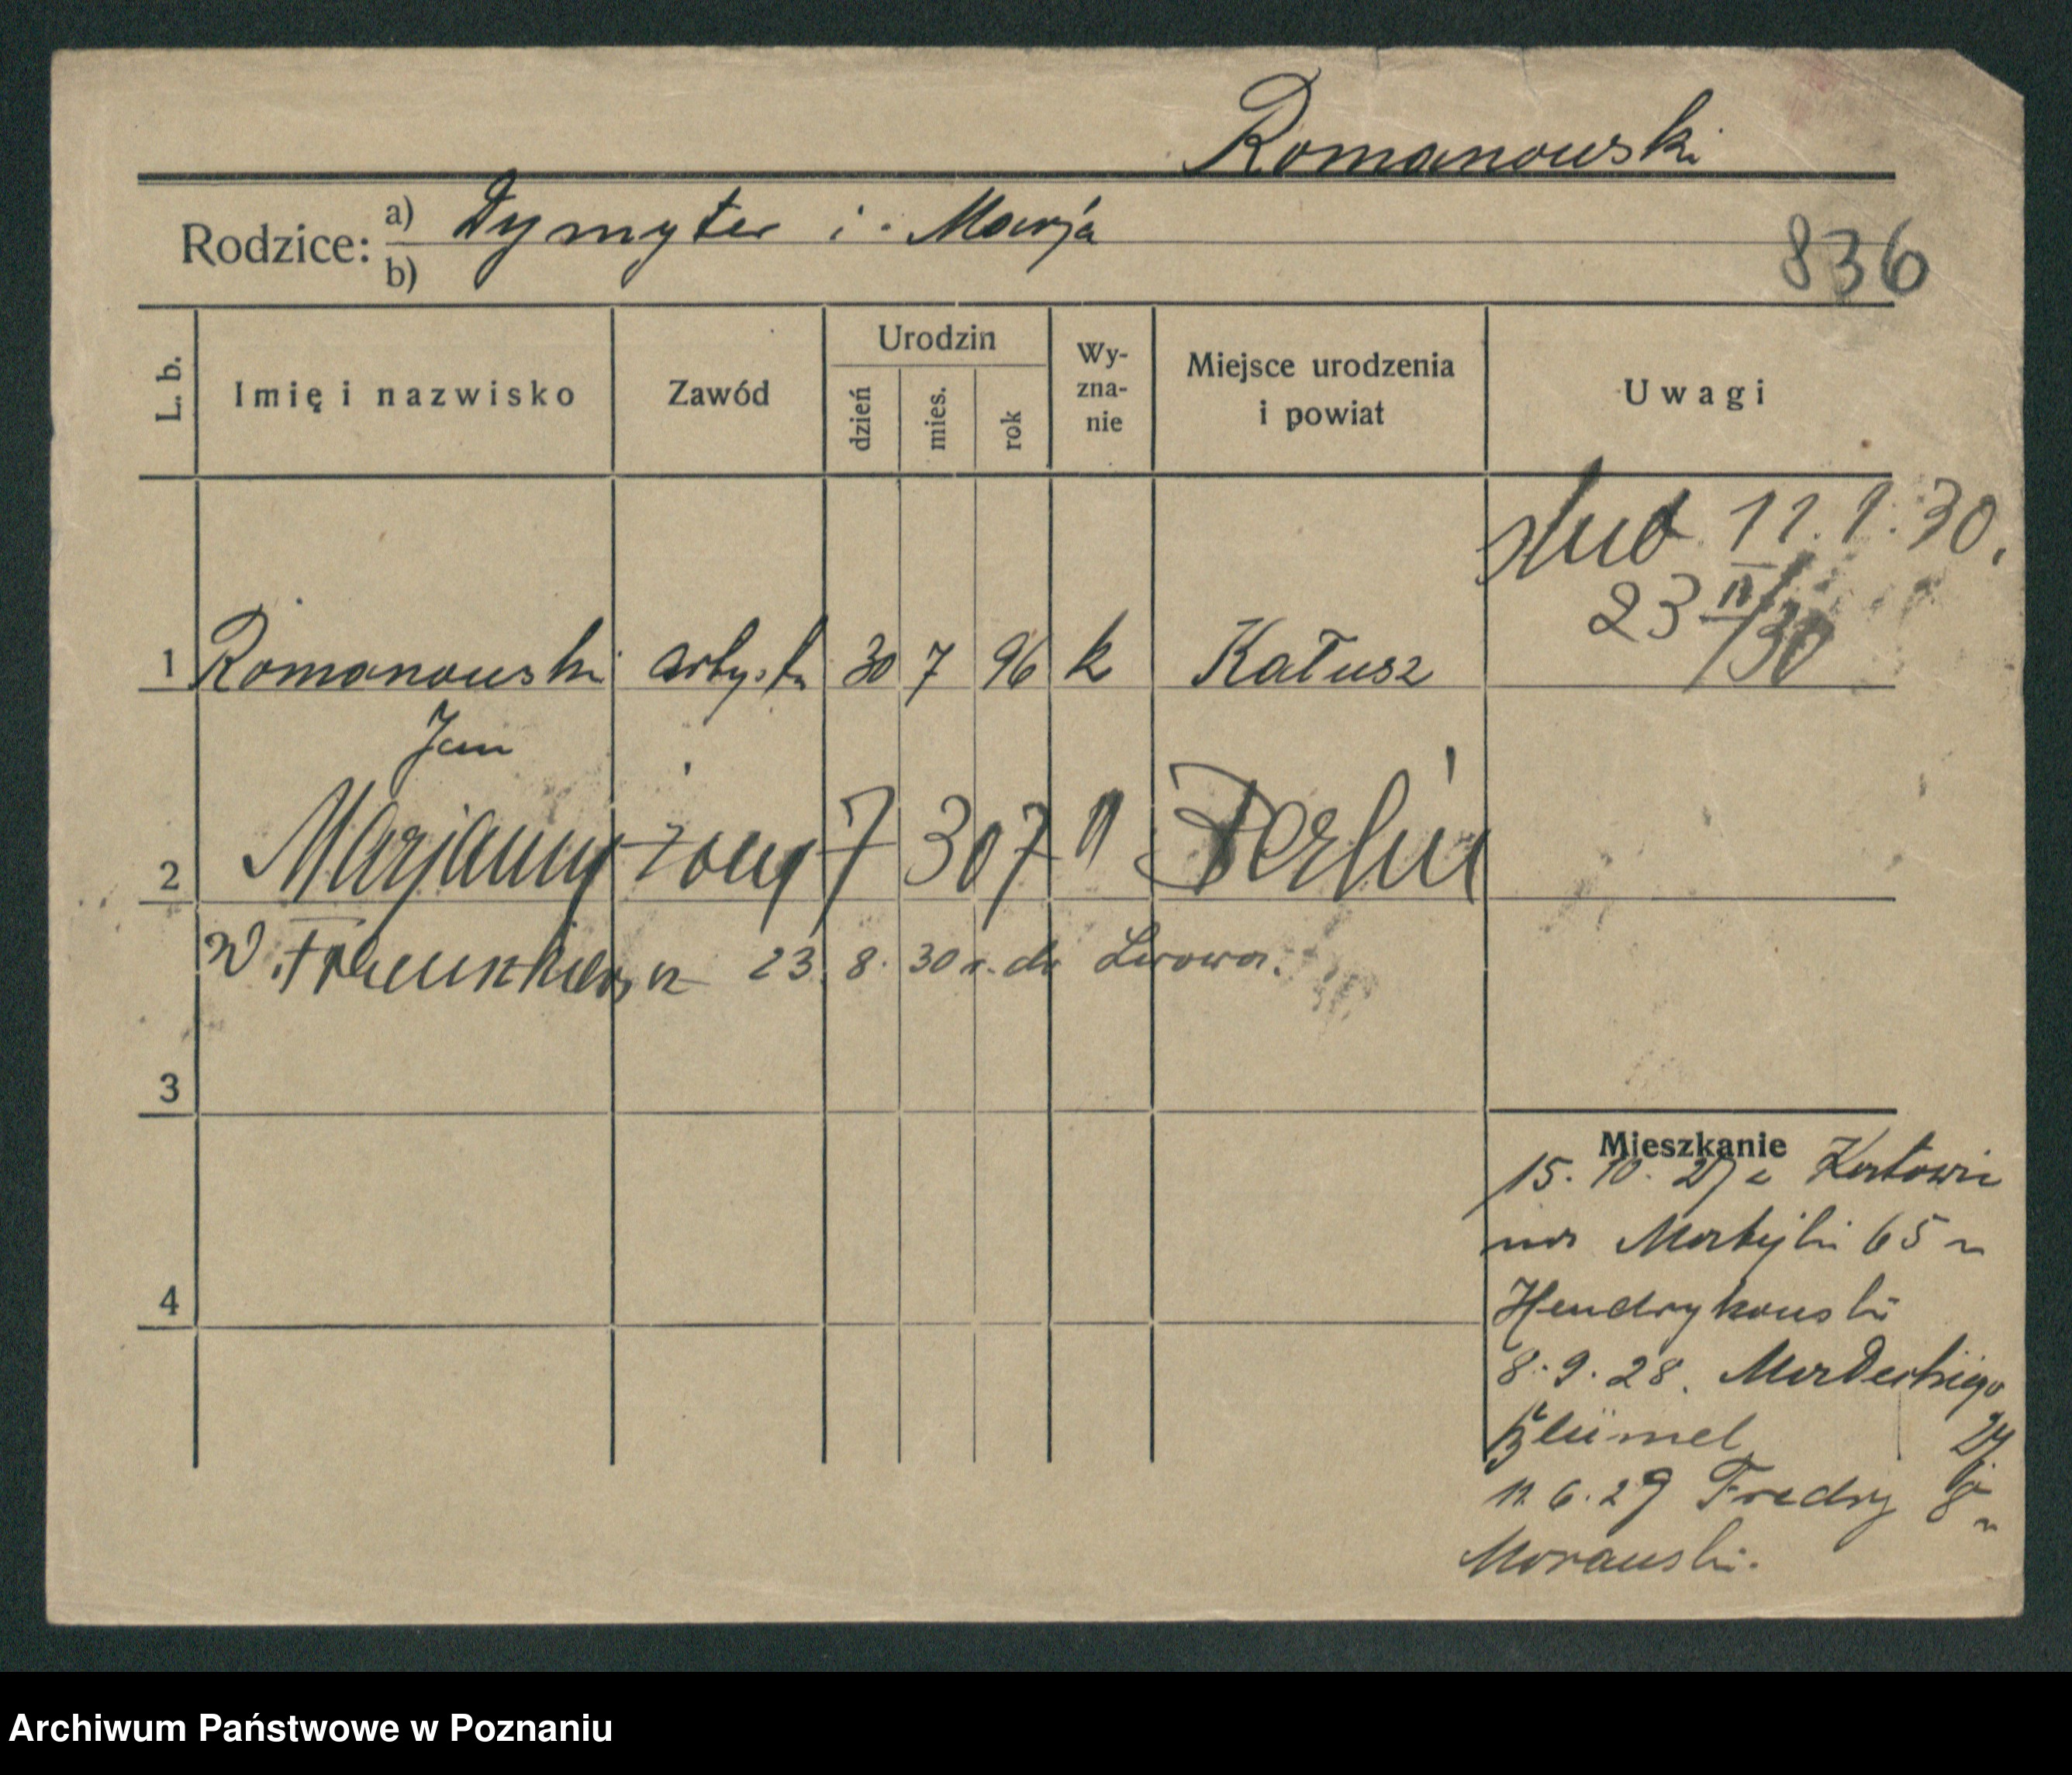 Romanowski
Rodzice: a) Dymyter i Marja
b)
836
L. b.
Imię i nazwisko
Zawód
Urodzin
dzień
mies.
rok
Wy-
zna-
nie
Miejsce urodzenia
i powiat
Uwagi
ślub 11.1.30.
23 /30
1 Romanowski artysta 30 7 96 k Kałusz
Jan
2 Marjanny żony 7 3 07 Berlin
23. 8. 30 r. do Lwowa.
3
4
Mieszkanie
15. 10. 27 z Katowic
65
Hendrykowski
8. 9. 28.
Blümel 27
11. 6. 29 Fredry 8
Morawski.
Archiwum Państwowe w Poznaniu